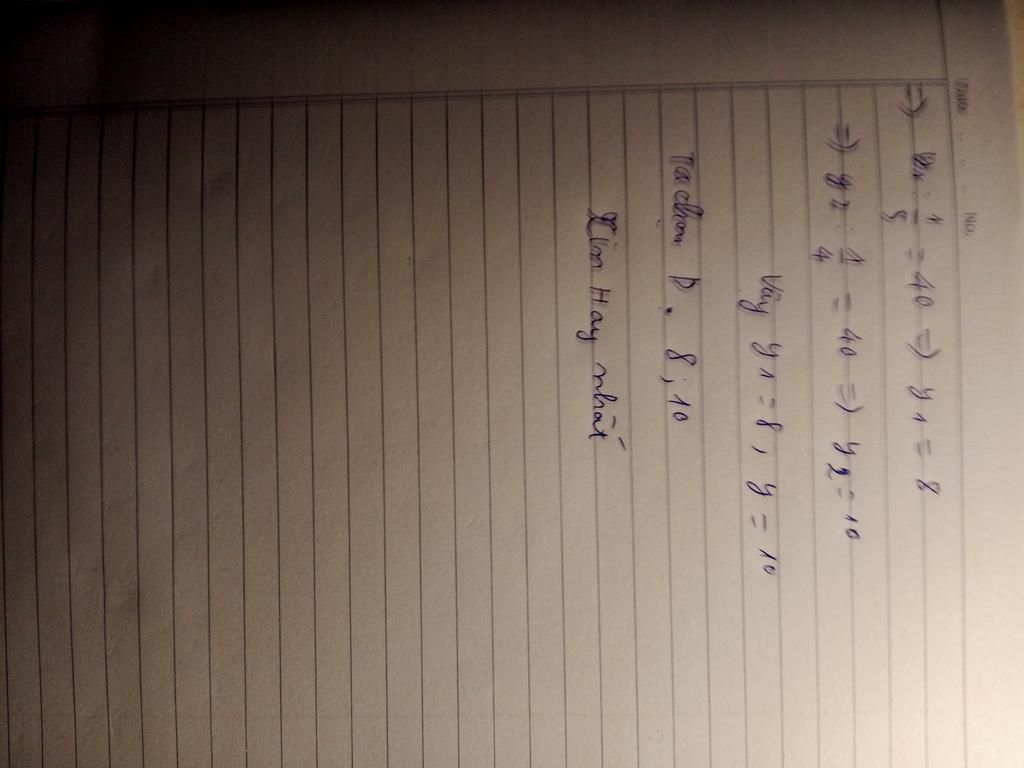 Date No.
=) y1 . 1/5 = 40 =) y1 = 8
=) y2 . 1/4 = 40 =) y2 = 10
Vậy y1 = 8 ; y = 10
Ta chọn D . 8 ; 10
Xin Hay nhất